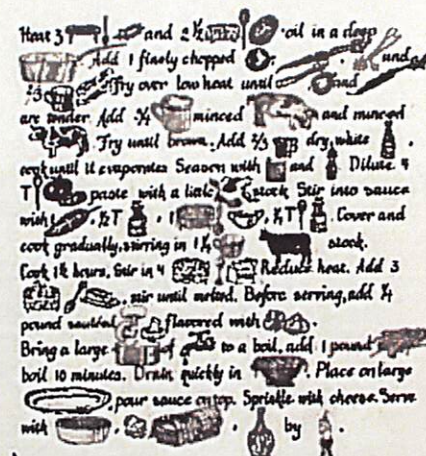 Heat 3 and 2 ½ oil in a deep
Add 1 finely chopped und
⅓ Fry over low heat until and
are tender. Add ¾ minced and minced
Fry until brown. Add ⅔ dry white
cook until it evaporates Season with and Dilute 4
T paste with a little stock Stir into sauce
with 1 , ½ T , 1 , ¼ T . Cover and
cook gradually, stirring in 1 ½ stock.
Cook 1½ hours, Stir in 4 Reduce heat. Add 3
, stir until melted. Before serving, add ¼
pound sautéed flavored with .
Bring a large of to a boil, add 1 pound
boil 10 minutes. Drain quickly in . Place on large
, pour sauce on top. Sprinkle with cheese. Serve
with , , by .